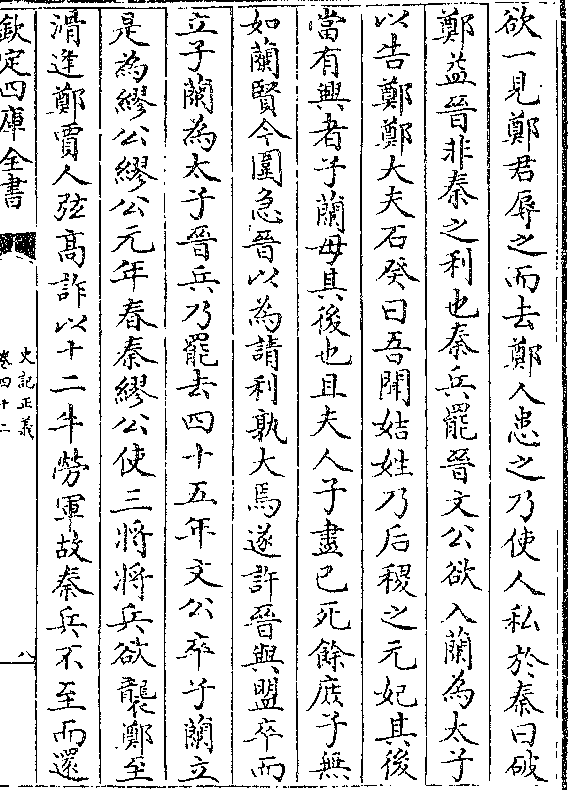 欲一見鄭君辱之而去鄭人患之乃使人私於秦曰破
鄭益晉非秦之利也秦兵罷晉文公欲入蘭為太子
以告鄭鄭大夫石癸曰吾聞姞姓乃后稷之元妃其後
當有興者子蘭母其後也且夫人子盡已死餘庶子無
如蘭賢今圍急晉以為請利孰大焉遂許晉與盟卒而
立子蘭為太子晉兵乃罷去四十五年文公卒子蘭立
是為繆公繆公元年春秦繆公使三將將兵欲襲鄭至
滑逢鄭賈人弦髙詐以十二牛勞軍故秦兵不至而還
欽定四庫全書
史記正義
卷四十二
八